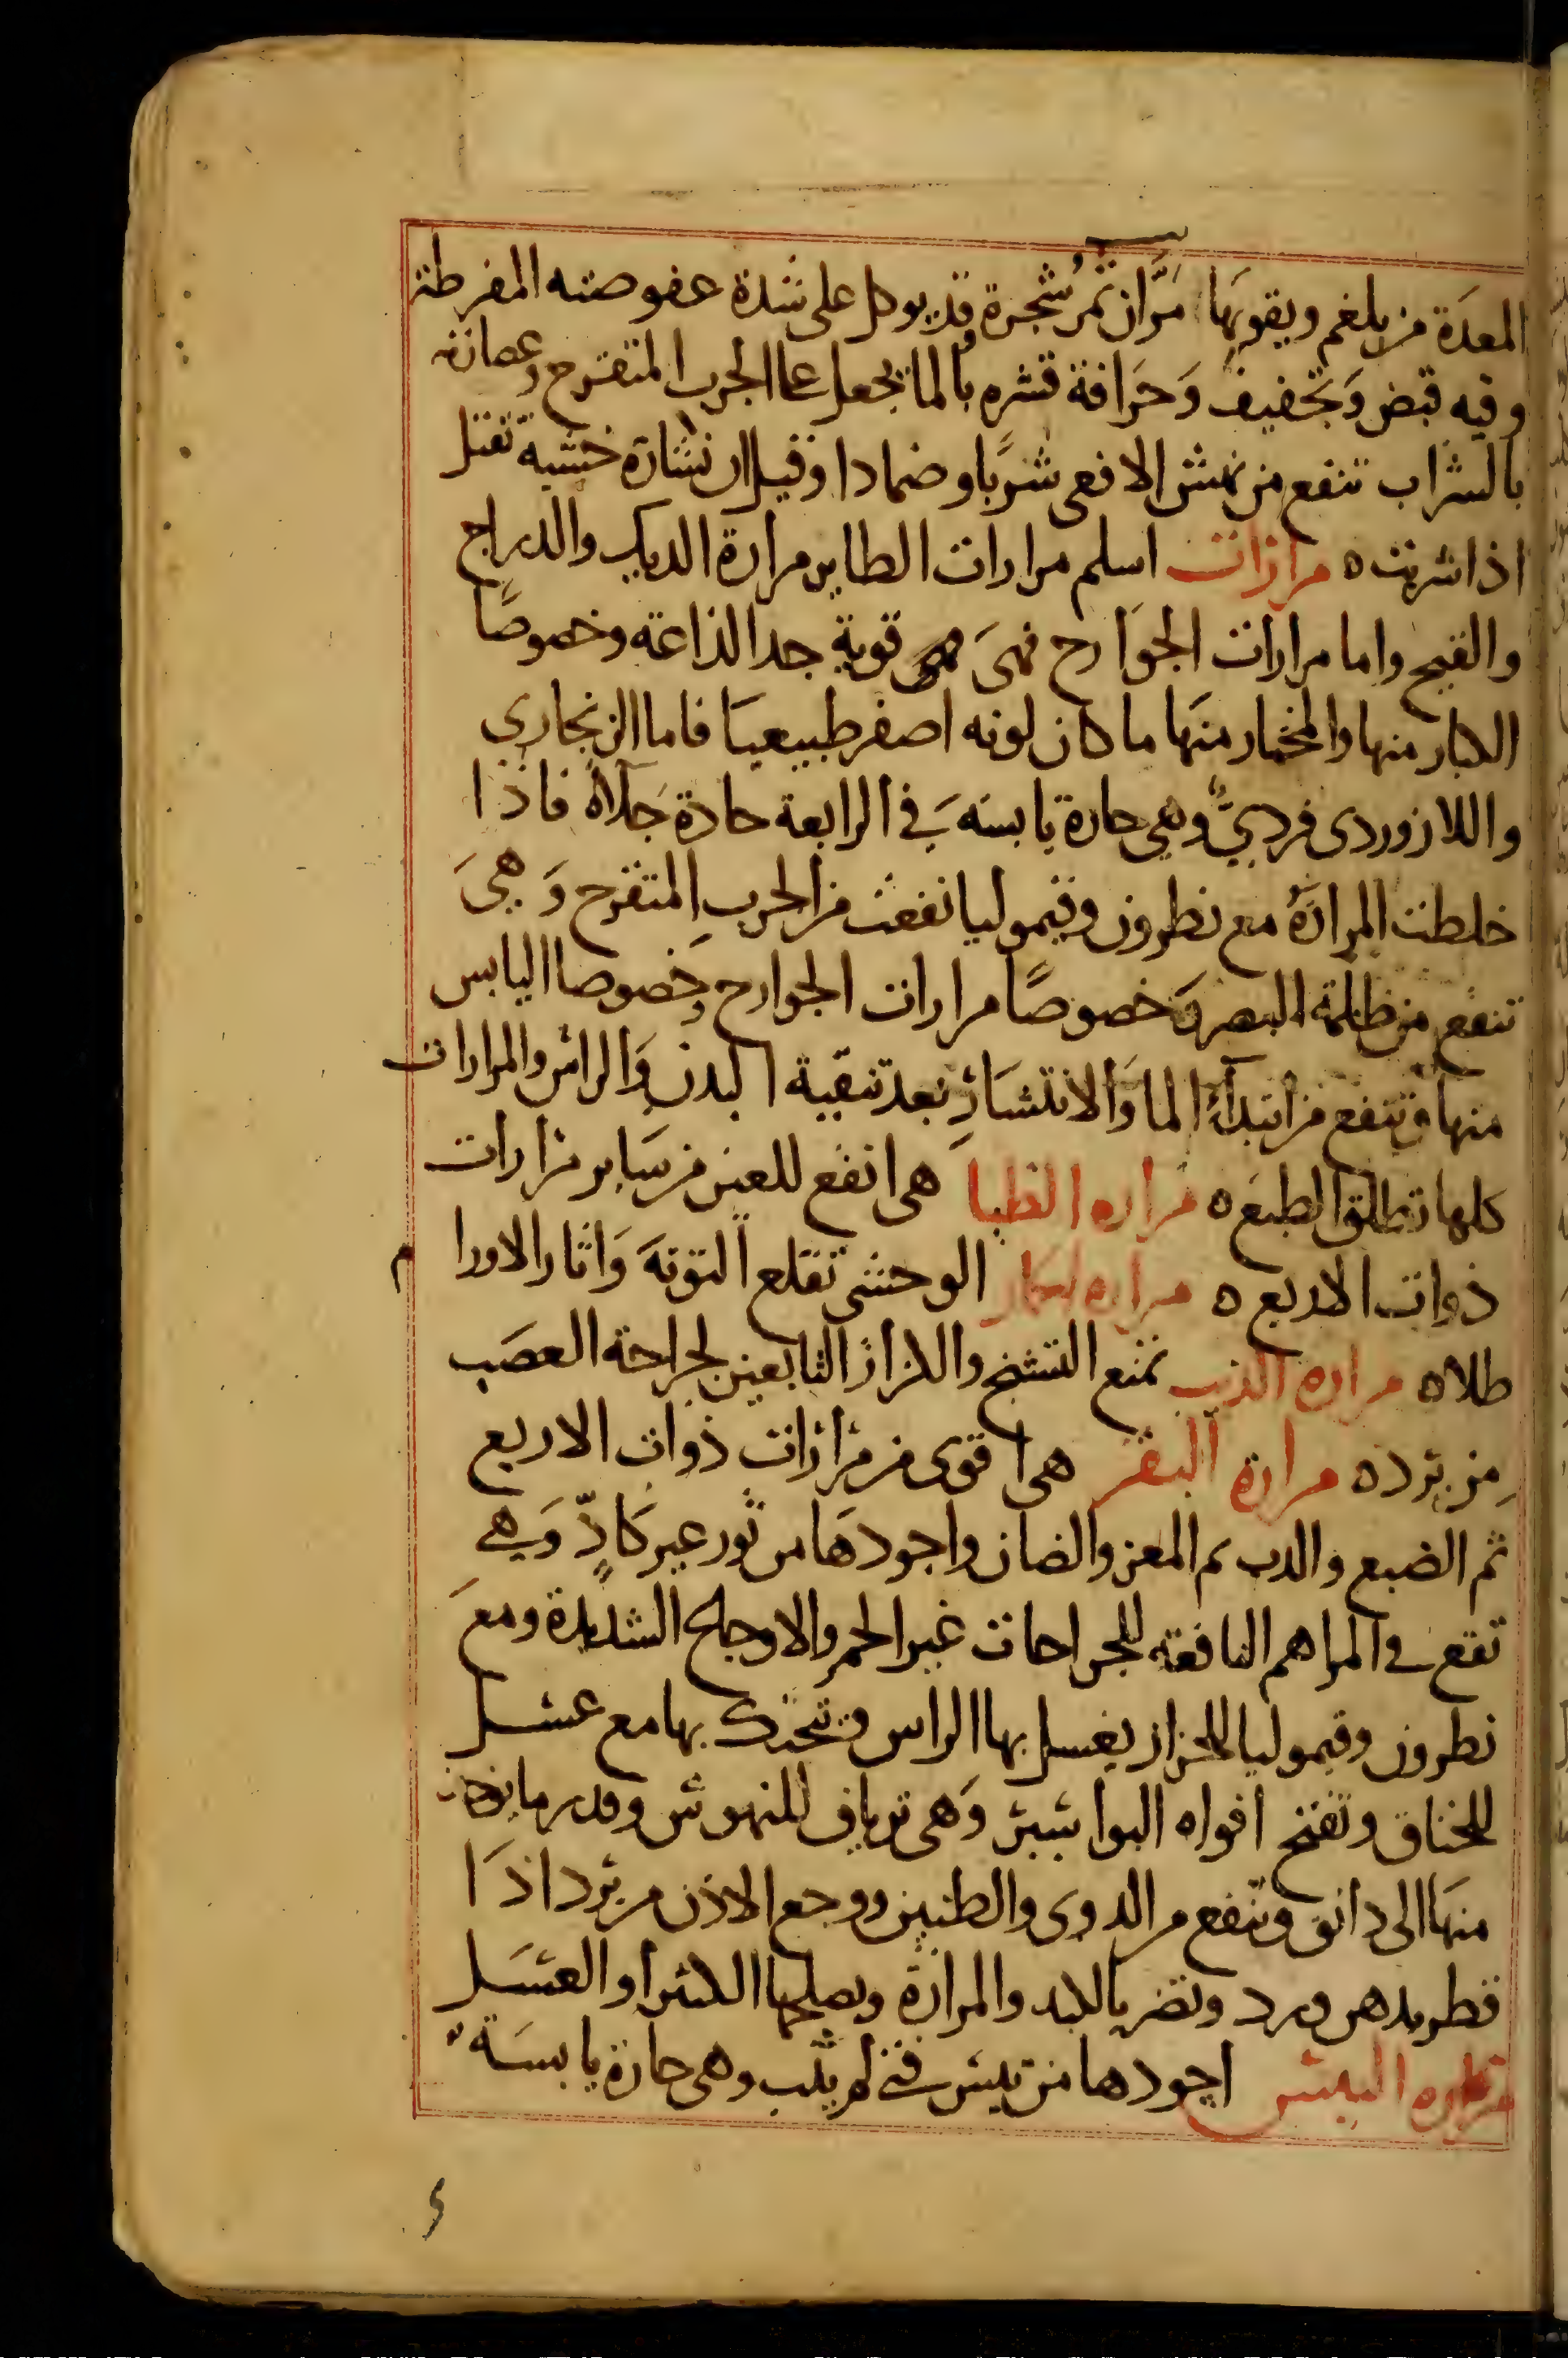 المعدَة من بلغم ويقويهَا مَرَّان ثمرُ شجرة وقد يوكل على شدة عفوصته المفرطة
وفيه قبض وَتجفيف وَحَرافة قشره بالما يجعل على الجرب المتقرح وعصارته
بالشراب تنفع من نهش الافعى شربًا وضمادا وقيل ان نشارة خشبه تقتل
اذا شربت ه مرارات اسلم مرارات الطاير مرارة الديك والدراج
والقبج واما مرارات الجوَارح فهىَ قوية جدا لذاعة وخصوصًا
الكبار منها والمختار منهَا ما كان لونه اصفر طبيعيا فاما الزنجارى
واللازوردى فردىّ وهى حارة يابسَه فى الرابعة حادة جَلّاة فاذا
خلطت المرارَة مع نطرون وقيموليا نفعت من الجرب المتقرح وَهىَ
تنفع من ظلمة البصر وَخصوصًا مرارات الجوارح وخصوصا اليابس
منها وتنفع من ابتداءِ الما وَالانتشَارِ بعد تنقية البدن وَالراس والمرارات
كلها تطلق الطبع ه مراره الظبا هى انفع للعين من سَاير مرارات
ذوات الاربع ه مراره الحمار الوحشى تقلع التوتة وَاثار الاورام
طلاه مراره الذيب تمنع التشنج والكزاز التابعين لجراحة العصَب
من برده مرارة البقر هى اقوى من مرارات ذوات الاربع
ثم الضبع والدب ثم المعز والضان واجودهَا من ثور غير كَادّ وَهى
تقع فى المراهم النافعه للجراحات غير الحمر والاوجاع الشديدة ومعَ
نطرون وقيموليا للحزاز يغسل بها الراس وتحنك بها مع عسل
للخناق وتفتح افواه البواسير وَهى ترياق للنهوش وقدر ما يوخذ
منهَا الى دانق وتنفع من الدوى والطنين ووجع الاذن من برد اذَا
قطر بدهن ورد وتضر بالكبد والمرارة ويصلحها الكثيرا والعسَل
مراره التيس اجودها من تيس فتى لم يشب وهى حارة يابسَة